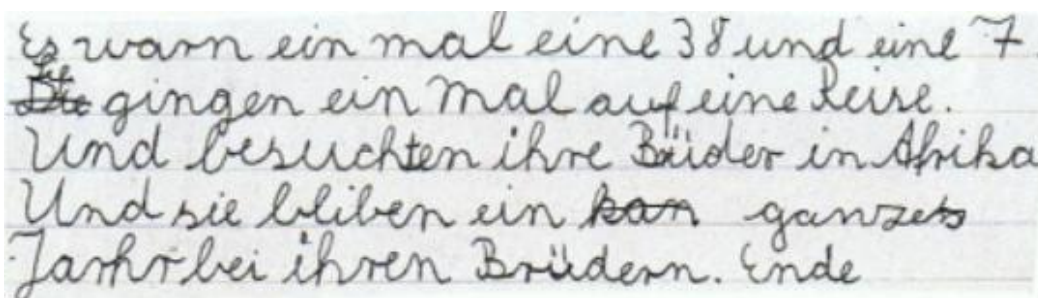 Es warn ein mal eine 38 und eine 7.
Sie gingen ein mal auf eine Reise.
Und besuchten ihre Brüder in Afrika
Und sie bliben ein kan ganzes
Jarhr bei ihren Brüdern. Ende